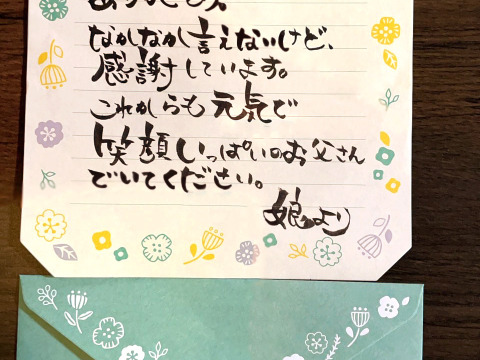 なかなか言えないけど、
感謝しています。
これからも元気で
笑顔いっぱいのお父さん
でいてください。
娘より